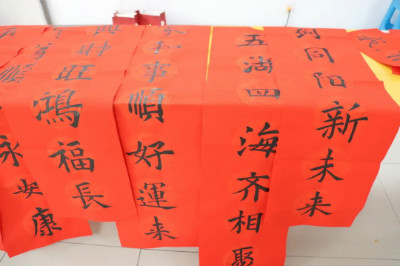 同阳新未来
五湖四海齐相聚
和事順好運来
财旺鴻福長
順
永安康